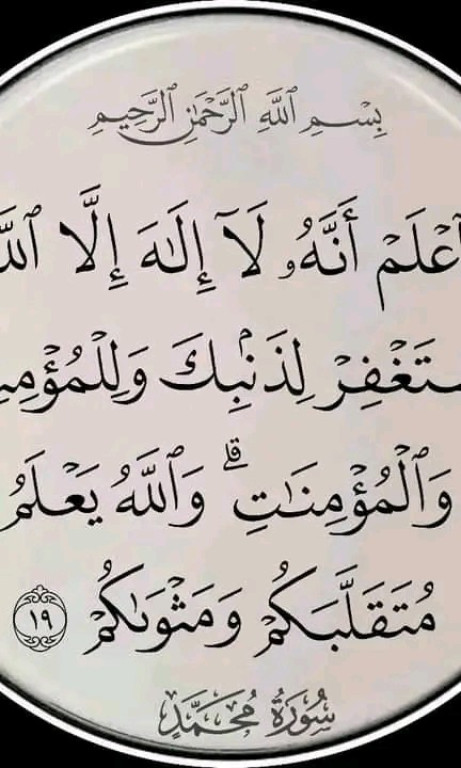 بِسْمِ ٱللَّهِ ٱلرَّحْمَٰنِ ٱلرَّحِيمِ
ٱعْلَمْ أَنَّهُۥ لَآ إِلَٰهَ إِلَّا ٱللَّ
سْتَغْفِرْ لِذَنۢبِكَ وَلِلْمُؤْمِ
وَٱلْمُؤْمِنَٰتِ ۗ وَٱللَّهُ يَعْلَمُ
مُتَقَلَّبَكُمْ وَمَثْوَىٰكُمْ ١٩
سُورَةُ مُحَمَّدٍ